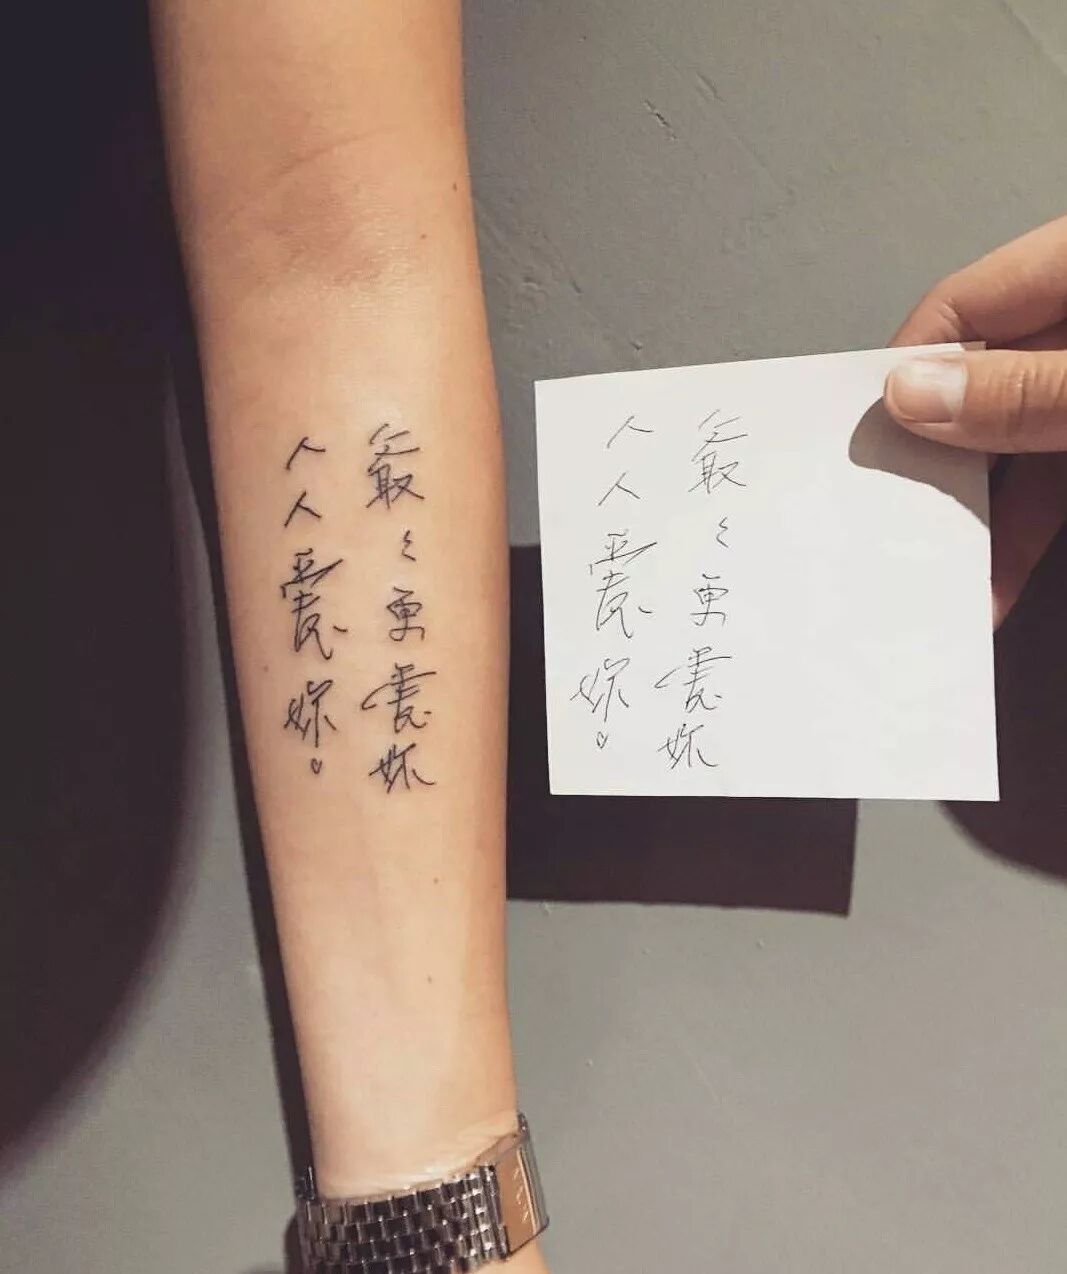 人人愛妳♡
爺々更愛妳
人人愛妳♡
爺々更愛妳